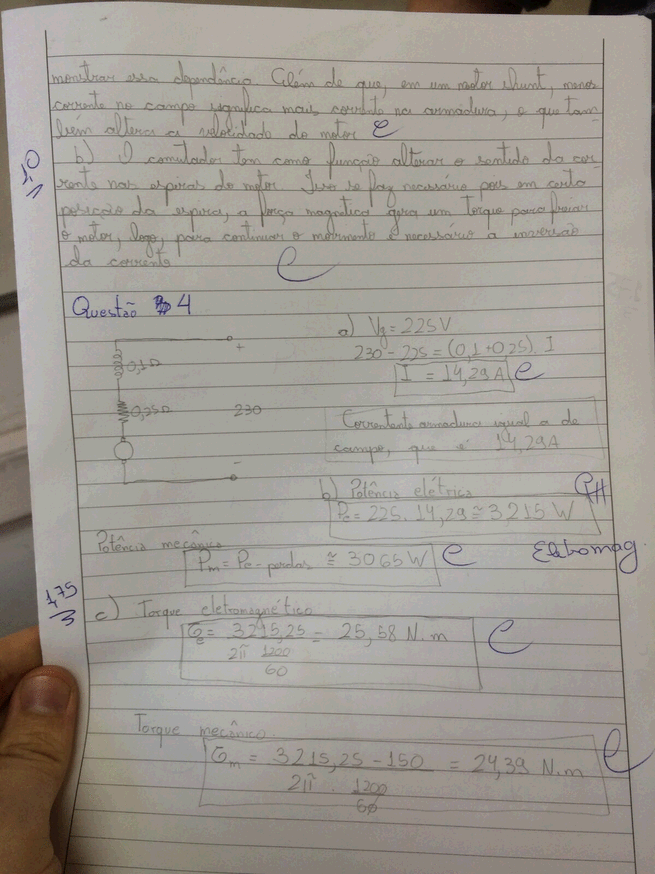 monstrar essa dependência. Além de que, em um motor shunt, menos
corrente no campo significa mais corrente na armadura, o que tam
bém altera a velocidade do motor C
b) O comutador tem como função alterar o sentido da cor
1,0
rente nas espiras do motor. Isso se faz necessário pois em certa
posição da espira, a força magnética gera um torque para frear
o motor, logo, para continuar o movimento é necessário a inversão
da corrente C
Questão 4
a) Vg = 225V
230 - 225 = (0,1 + 0,25). I
I = 14,29A C
+
0,1Ω
0,25Ω
230
-
Corrente armadura igual a de
campo, que é 14,29A
b) Potência elétrica
Pe = 225. 14,29 ≅ 3215 W
Potência mecânica
Pm = Pe - perdas ≅ 3065 W C
Eletromag.
1,75
3
c) Torque eletromagnético
τe = 3215,25 = 25,58 N.m C
2π 1200
60
Torque mecânico
τm = 3215,25 - 150 = 24,39 N.m C
2π . 1200
60